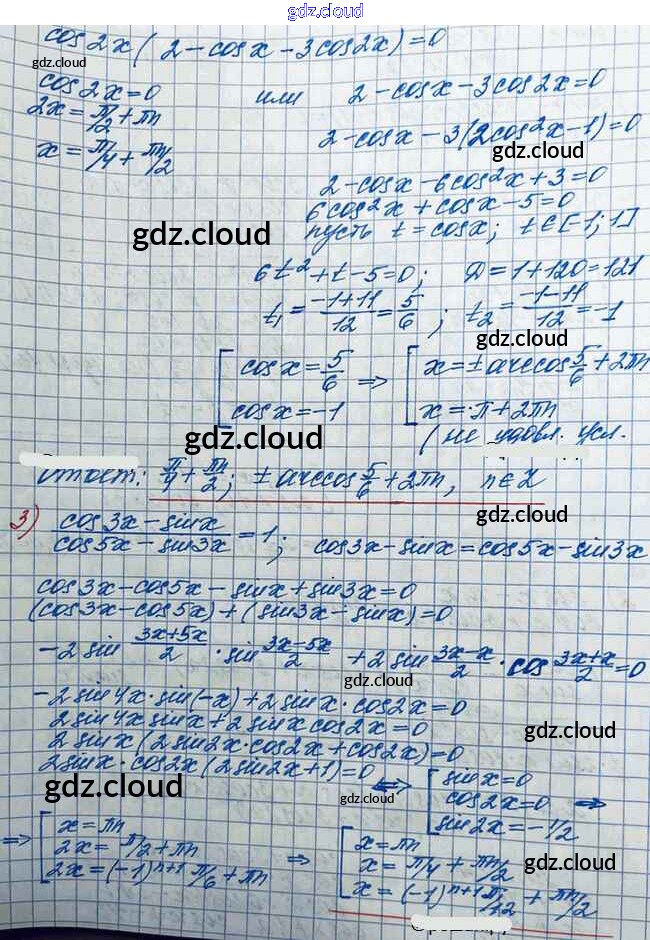 gdz.cloud
cos2x(2-cosx-3cos2x)=0
gdz.cloud
cos2x=0 или 2-cosx-3cos2x=0
2x=π/2+πn
2-cosx-3(2cos²x-1)=0
x=π/4+πn/2
gdz.cloud
2-cosx-6cos²x+3=0
6cos²x+cosx-5=0
пусть t=cosx; t∈[-1;1]
gdz.cloud
6t²+t-5=0; D=1+120=121
t₁=(-1+11)/12=5/6; t₂=(-1-11)/12=-1
gdz.cloud
[cosx=5/6 => [x=±arccos5/6+2πn
cosx=-1 x=π+2πn
gdz.cloud
(не удовл. усл.
Ответ: π/4+πn/2; ±arccos5/6+2πn, n∈Z
3) (cos3x-sinx)/(cos5x-sin3x)=1; cos3x-sinx=cos5x-sin3x
cos3x-cos5x-sinx+sin3x=0
(cos3x-cos5x)+(sin3x-sinx)=0
-2sin (3x+5x)/2 · sin (3x-5x)/2 + 2sin (3x-x)/2 · cos (3x+x)/2=0
gdz.cloud
-2sin4x·sin(-x)+2sinx·cos2x=0
2sin4xsinx+2sinxcos2x=0
gdz.cloud
2sinx(2sin2x·cos2x+cos2x)=0
2sinx·cos2x(2sin2x+1)=0 <=> [sinx=0
gdz.cloud
gdz.cloud
cos2x=0 =>
sin2x=-1/2
=> [x=πn
2x=π/2+πn
2x=(-1)ⁿ⁺¹π/6+πn
=> [x=πn
x=π/4+πn/2
gdz.cloud
x=(-1)ⁿ⁺¹π/12+πn/2
gdz.cloud